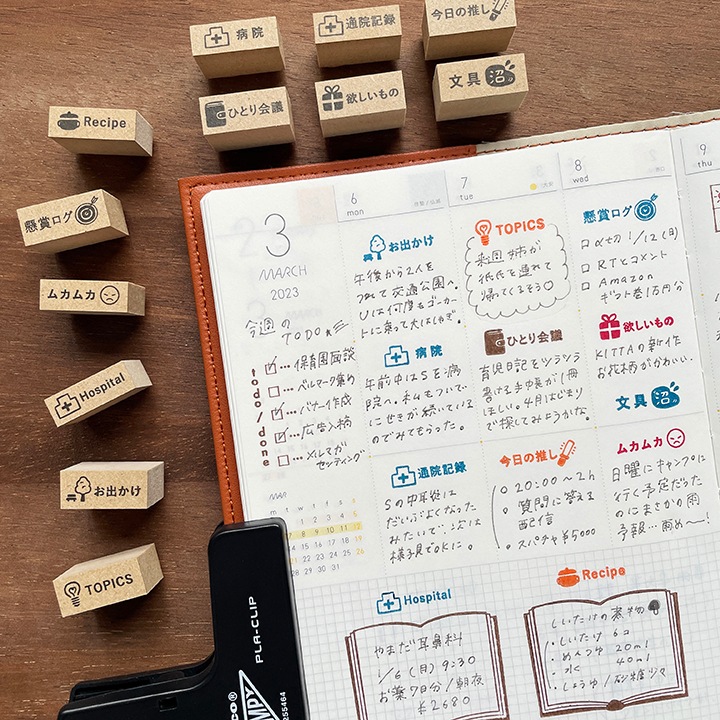 病院
通院記録
今日の推し
ひとり会議
欲しいもの
文具沼
Recipe
懸賞ログ
ムカムカ
Hospital
お出かけ
TOPICS
3
MARCH
2023
今週の
TODO
todo/done
保育園面談
ベルマーク集め
バナー作成
広告入稿
メルマガ
セッティング
MAR
m t w t f s s
1 2 3 4 5
6 7 8 9 10 11 12
13 14 15 16 17 18 19
20 21 22 23 24 25 26
27 28 29 30 31
6
mon
お出かけ
午後から2人を
つれて交通公園へ。
Uは何度もゴーカー
トに乗って大はしゃぎ。
病院
午前中はSを病
院へ。私もついで
にせきが続いている
のでみてもらった。
通院記録
Sの中耳炎は
だいぶよくなった
みたいで、次は
様子見でOKに。
7
tue
TOPICS
来週姉が
彼氏を連れて
帰ってくるそう
ひとり会議
育児日記をツラツラ
書ける手帳が1冊
ほしい。4月はじまり
で探してみようかな。
今日の推し
20:00〜2h
質問に答える
配信
スパチャ¥5000
8
wed
懸賞ログ
〆切 1/12(日)
RTとコメント
Amazon
ギフト券1万円分
欲しいもの
KITTAの新作
お花柄がかわいい。
文具沼
ムカムカ
日曜にキャンプに
行く予定だった
のにまさかの雨
予報…雨め〜!
9
thu
Hospital
やまだ耳鼻科
1/6(月)9:30
お薬7日分/朝夜
¥2680
Recipe
しいたけの煮物
しいたけ 6コ
めんつゆ 20ml
水 40ml
しょうゆ/砂糖少々
PLA-CLIP
255464